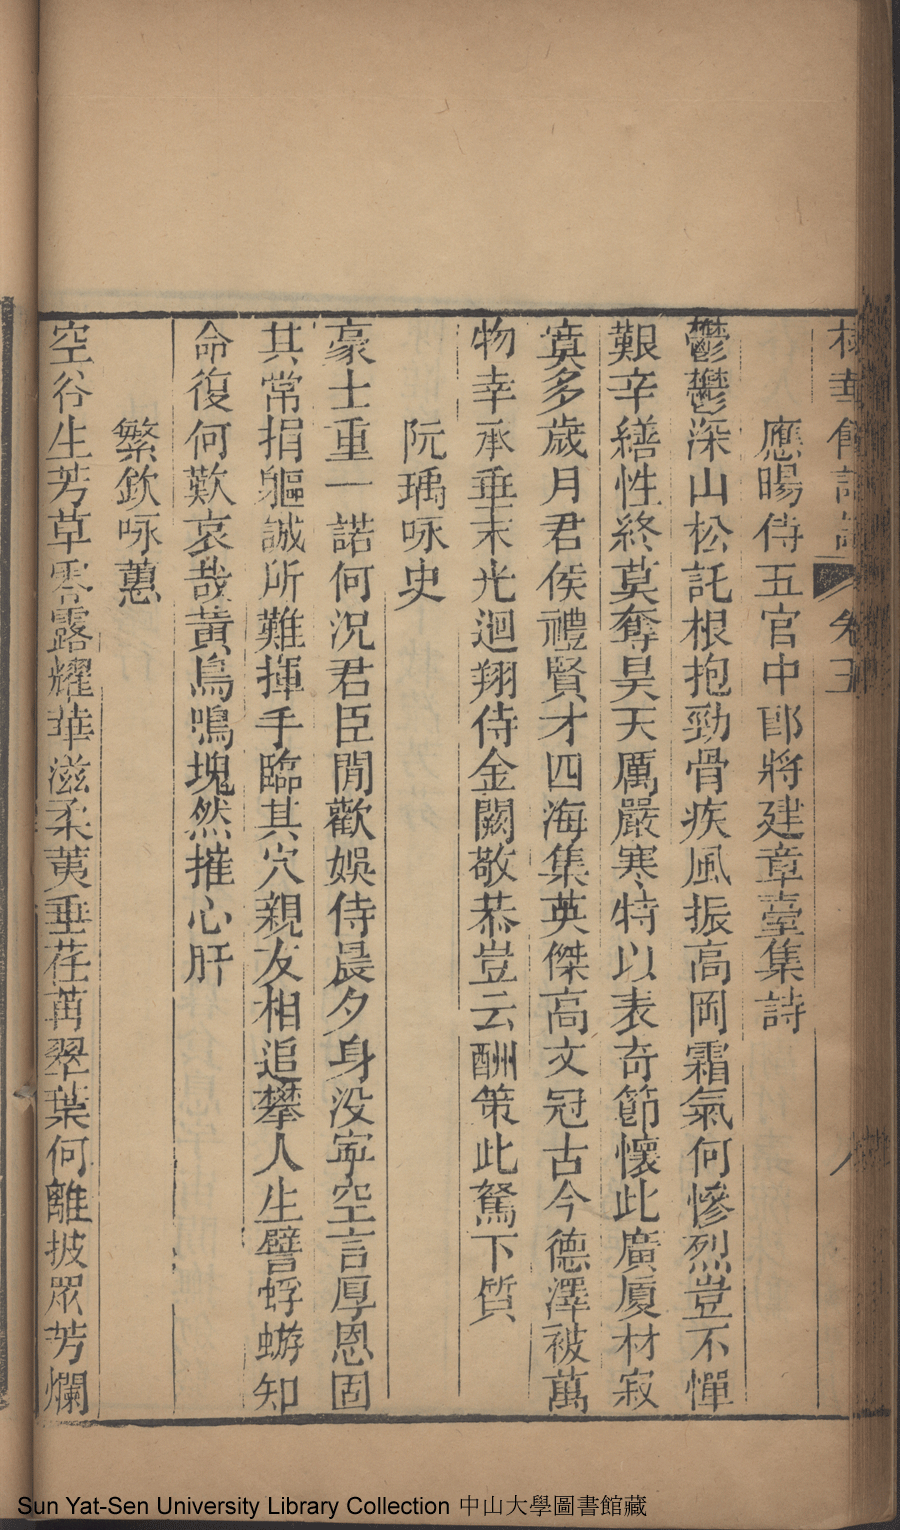 華館詩
卷五
八
應暘侍五官中郎將建章臺集詩
鬱鬱深山松託根抱勁骨疾風振高岡霜氣何慘烈豈不憚
艱辛繕性終莫奪昊天厲嚴寒特以表奇節懷此廣厦材寂
寞多歲月君侯禮賢才四海集英傑高文冠古今德澤被萬
物幸承垂末光迴翔侍金闕敬恭豈云酬策此駑下質
阮瑀咏史
豪士重一諾何況君臣閒歡娛侍晨夕身没寧空言厚恩固
其常捐軀誠所難揮手臨其穴親友相追攀人生譬蜉蝣知
命復何歎哀哉黃鳥鳴塊然摧心肝
繁欽咏蕙
空谷生芳草零露耀華滋柔荑垂荏苒翠葉何離披眾芳爛
Sun Yat-Sen University Library Collection 中山大學圖書館藏